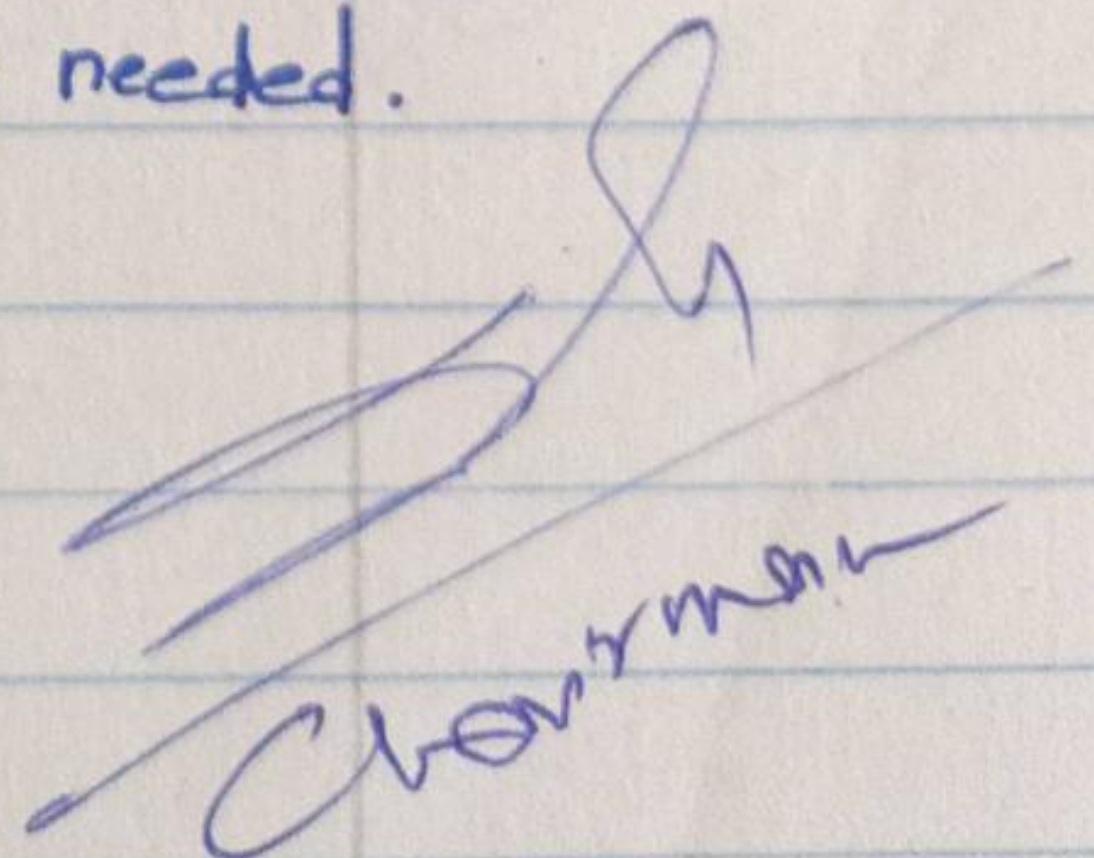 needed.
Chairman